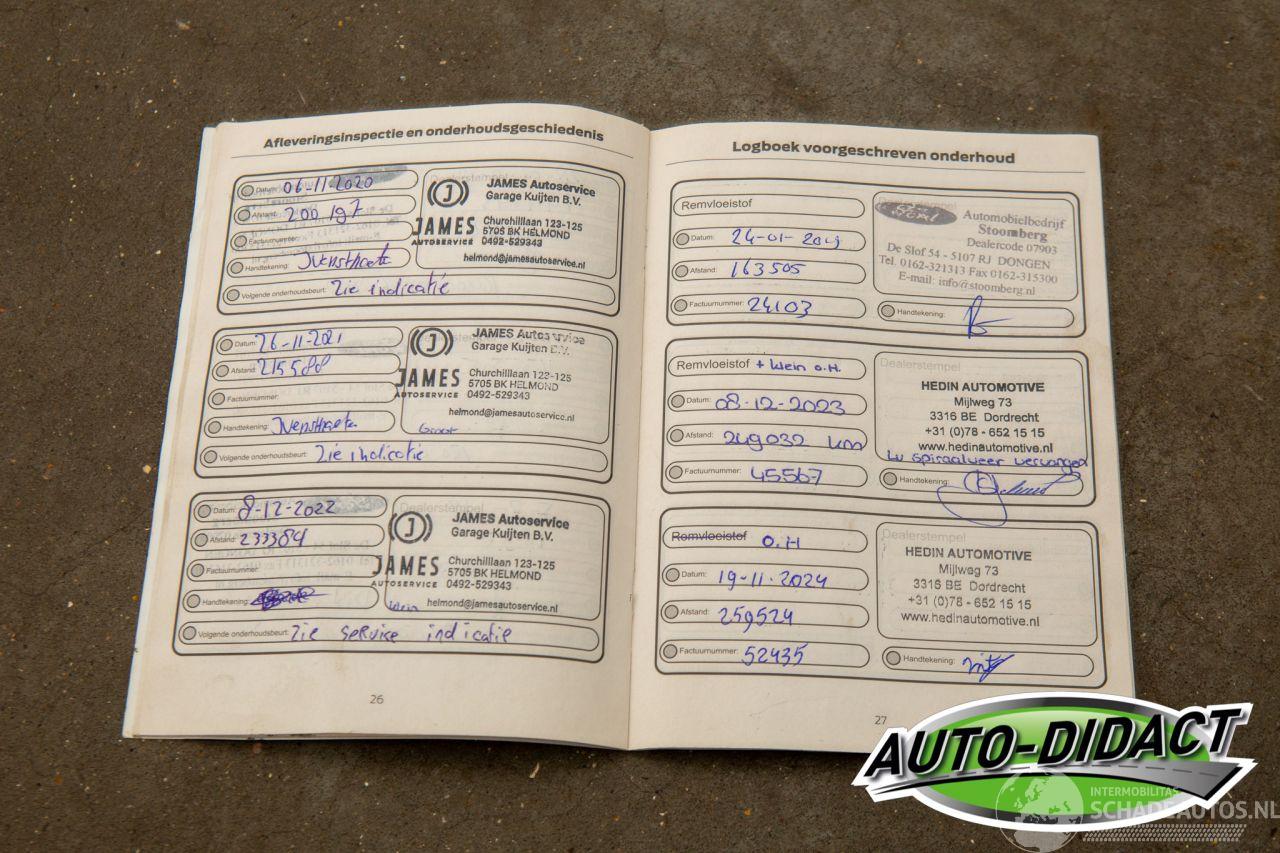 Afleveringsinspectie en onderhoudsgeschiedenis
Datum: 06-11-2020
Afstand: 200197
Factuurnummer:
Handtekening:
Volgende onderhoudsbeurt: Zie indicatie
JAMES Autoservice
Garage Kuijten B.V.
JAMES
AUTOSERVICE
Churchilllaan 123-125
5705 BK HELMOND
0492-529343
helmond@jamesautoservice.nl
Datum: 26-11-2021
Afstand: 215588
Factuurnummer:
Handtekening:
Volgende onderhoudsbeurt: Zie indicatie
JAMES Autoservice
Garage Kuijten B.V.
JAMES
AUTOSERVICE
Churchilllaan 123-125
5705 BK HELMOND
0492-529343
helmond@jamesautoservice.nl
Groot
Datum: 8-12-2022
Afstand: 233384
Factuurnummer:
Handtekening:
Volgende onderhoudsbeurt: Zie service indicatie
Dealerstempel
JAMES Autoservice
Garage Kuijten B.V.
JAMES
AUTOSERVICE
Churchilllaan 123-125
5705 BK HELMOND
0492-529343
helmond@jamesautoservice.nl
klein
26
Logboek voorgeschreven onderhoud
Remvloeistof
Datum: 24-01-2019
Afstand: 163505
Factuurnummer: 24103
Automobielbedrijf
Stoomberg
Dealercode 07903
De Slof 54 - 5107 RJ DONGEN
Tel. 0162-321313 Fax 0162-315300
E-mail: info@stoomberg.nl
Handtekening:
Remvloeistof + klein o.H.
Datum: 08-12-2023
Afstand: 249032 km
Factuurnummer: 45567
Dealerstempel
HEDIN AUTOMOTIVE
Mijlweg 73
3316 BE Dordrecht
+31 (0)78 - 652 15 15
www.hedinautomotive.nl
LV spiraalveer vervangen
Handtekening:
Remvloeistof O.H
Datum: 19-11-2024
Afstand: 259524
Factuurnummer: 52435
Dealerstempel
HEDIN AUTOMOTIVE
Mijlweg 73
3316 BE Dordrecht
+31 (0)78 - 652 15 15
www.hedinautomotive.nl
Handtekening:
27
AUTO-DIDACT
INTERMOBILITAS
SCHADEAUTOS.NL